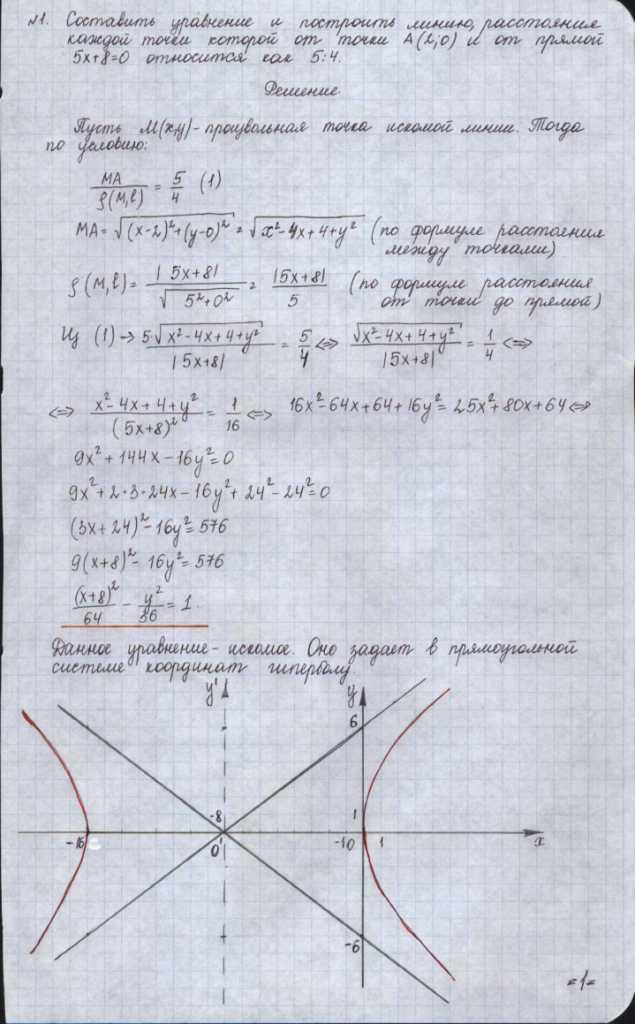 №1. Составить уравнение и построить линию, расстояния
каждой точки которой от точки А(2;0) и от прямой
5x+8=0 относится как 5:4.
Решение
Пусть M(x,y) - произвольная точка искомой линии. Тогда
по условию:
MA/ρ(M,l) = 5/4 (1)
MA = √((x-2)²+(y-0)²) = √(x²-4x+4+y²) (по формуле расстояния
между точками)
ρ(M,l) = |5x+8|/√(5²+0²) = |5x+8|/5 (по формуле расстояния
от точки до прямой)
Из (1) → 5·√(x²-4x+4+y²)/|5x+8| = 5/4 ⇔ √(x²-4x+4+y²)/|5x+8| = 1/4 ⇔
⇔ (x²-4x+4+y²)/(5x+8)² = 1/16 ⇔ 16x²-64x+64+16y² = 25x²+80x+64 ⇔
9x²+144x-16y²=0
9x²+2·3·24x-16y²+24²-24²=0
(3x+24)²-16y²=576
9(x+8)²-16y²=576
(x+8)²/64 - y²/36 = 1.
Данное уравнение - искомое. Оно задает в прямоугольной
системе координат гиперболу.
y' y
6
-8 1
-16 0' -10 1 x
-6
=1=